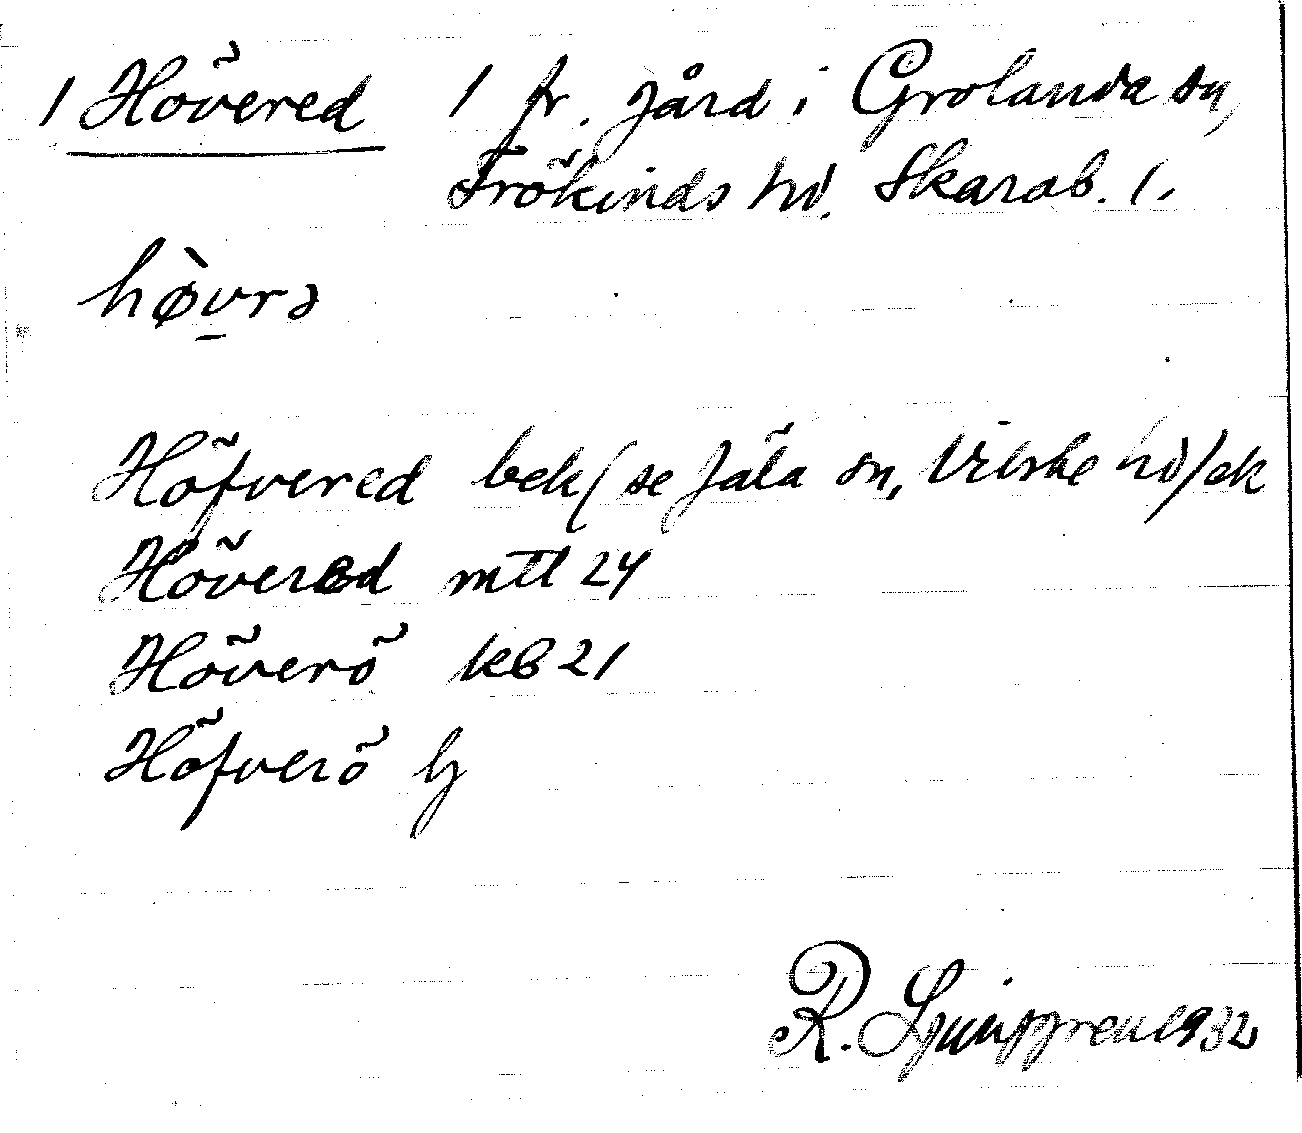 1 Hövered 1 fr. gård i Grolanda sn,
Frökinds hd. Skarab. l.
hø̀vrə
Höfvered bek (se Jäla sn, Vilske hd) ek
Hövered mtl 24
Höverö kb 21
Höfverö lj
R. Ljunggren 1932